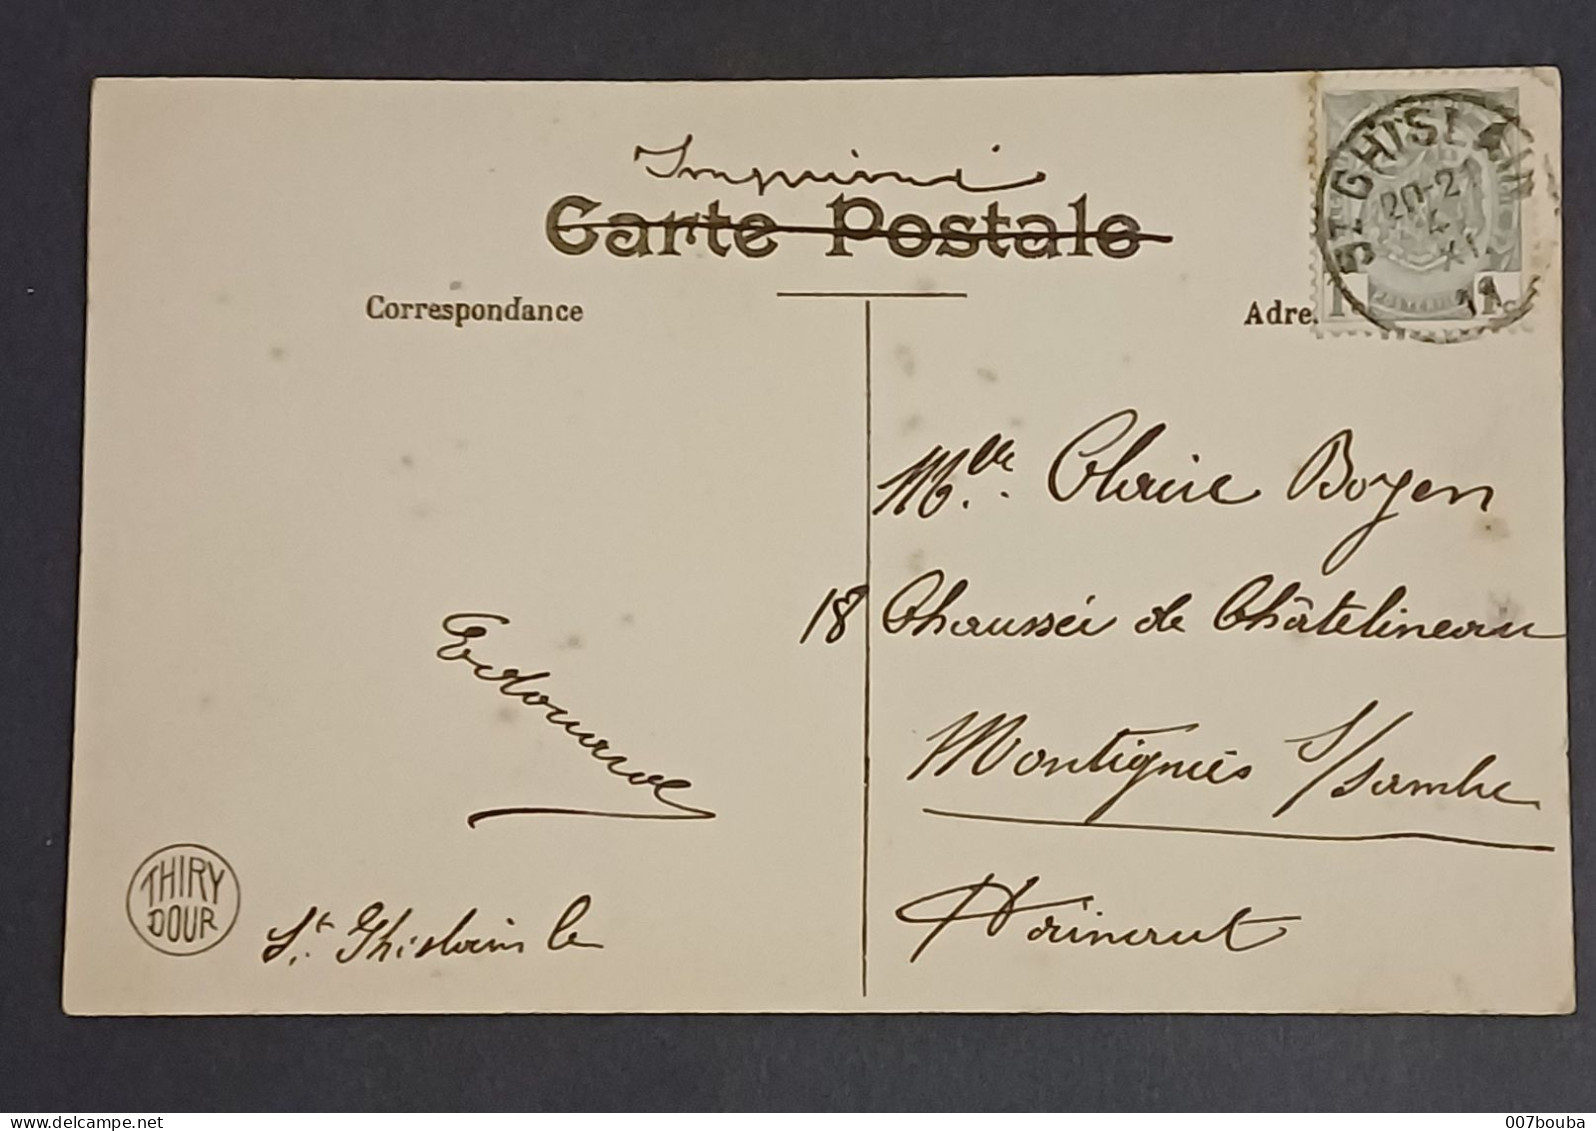 Imprimé
Carte Postale
Correspondance
Adre
ST GHISLAIN
20-21
4
XI
11
1c 1c
Mlle. Claire Boyen
18 Chaussée de Châtelineau
Montignies s/sambre
Hainaut
Edouard
St. Ghislain le
THIRY
DOUR
007bouba